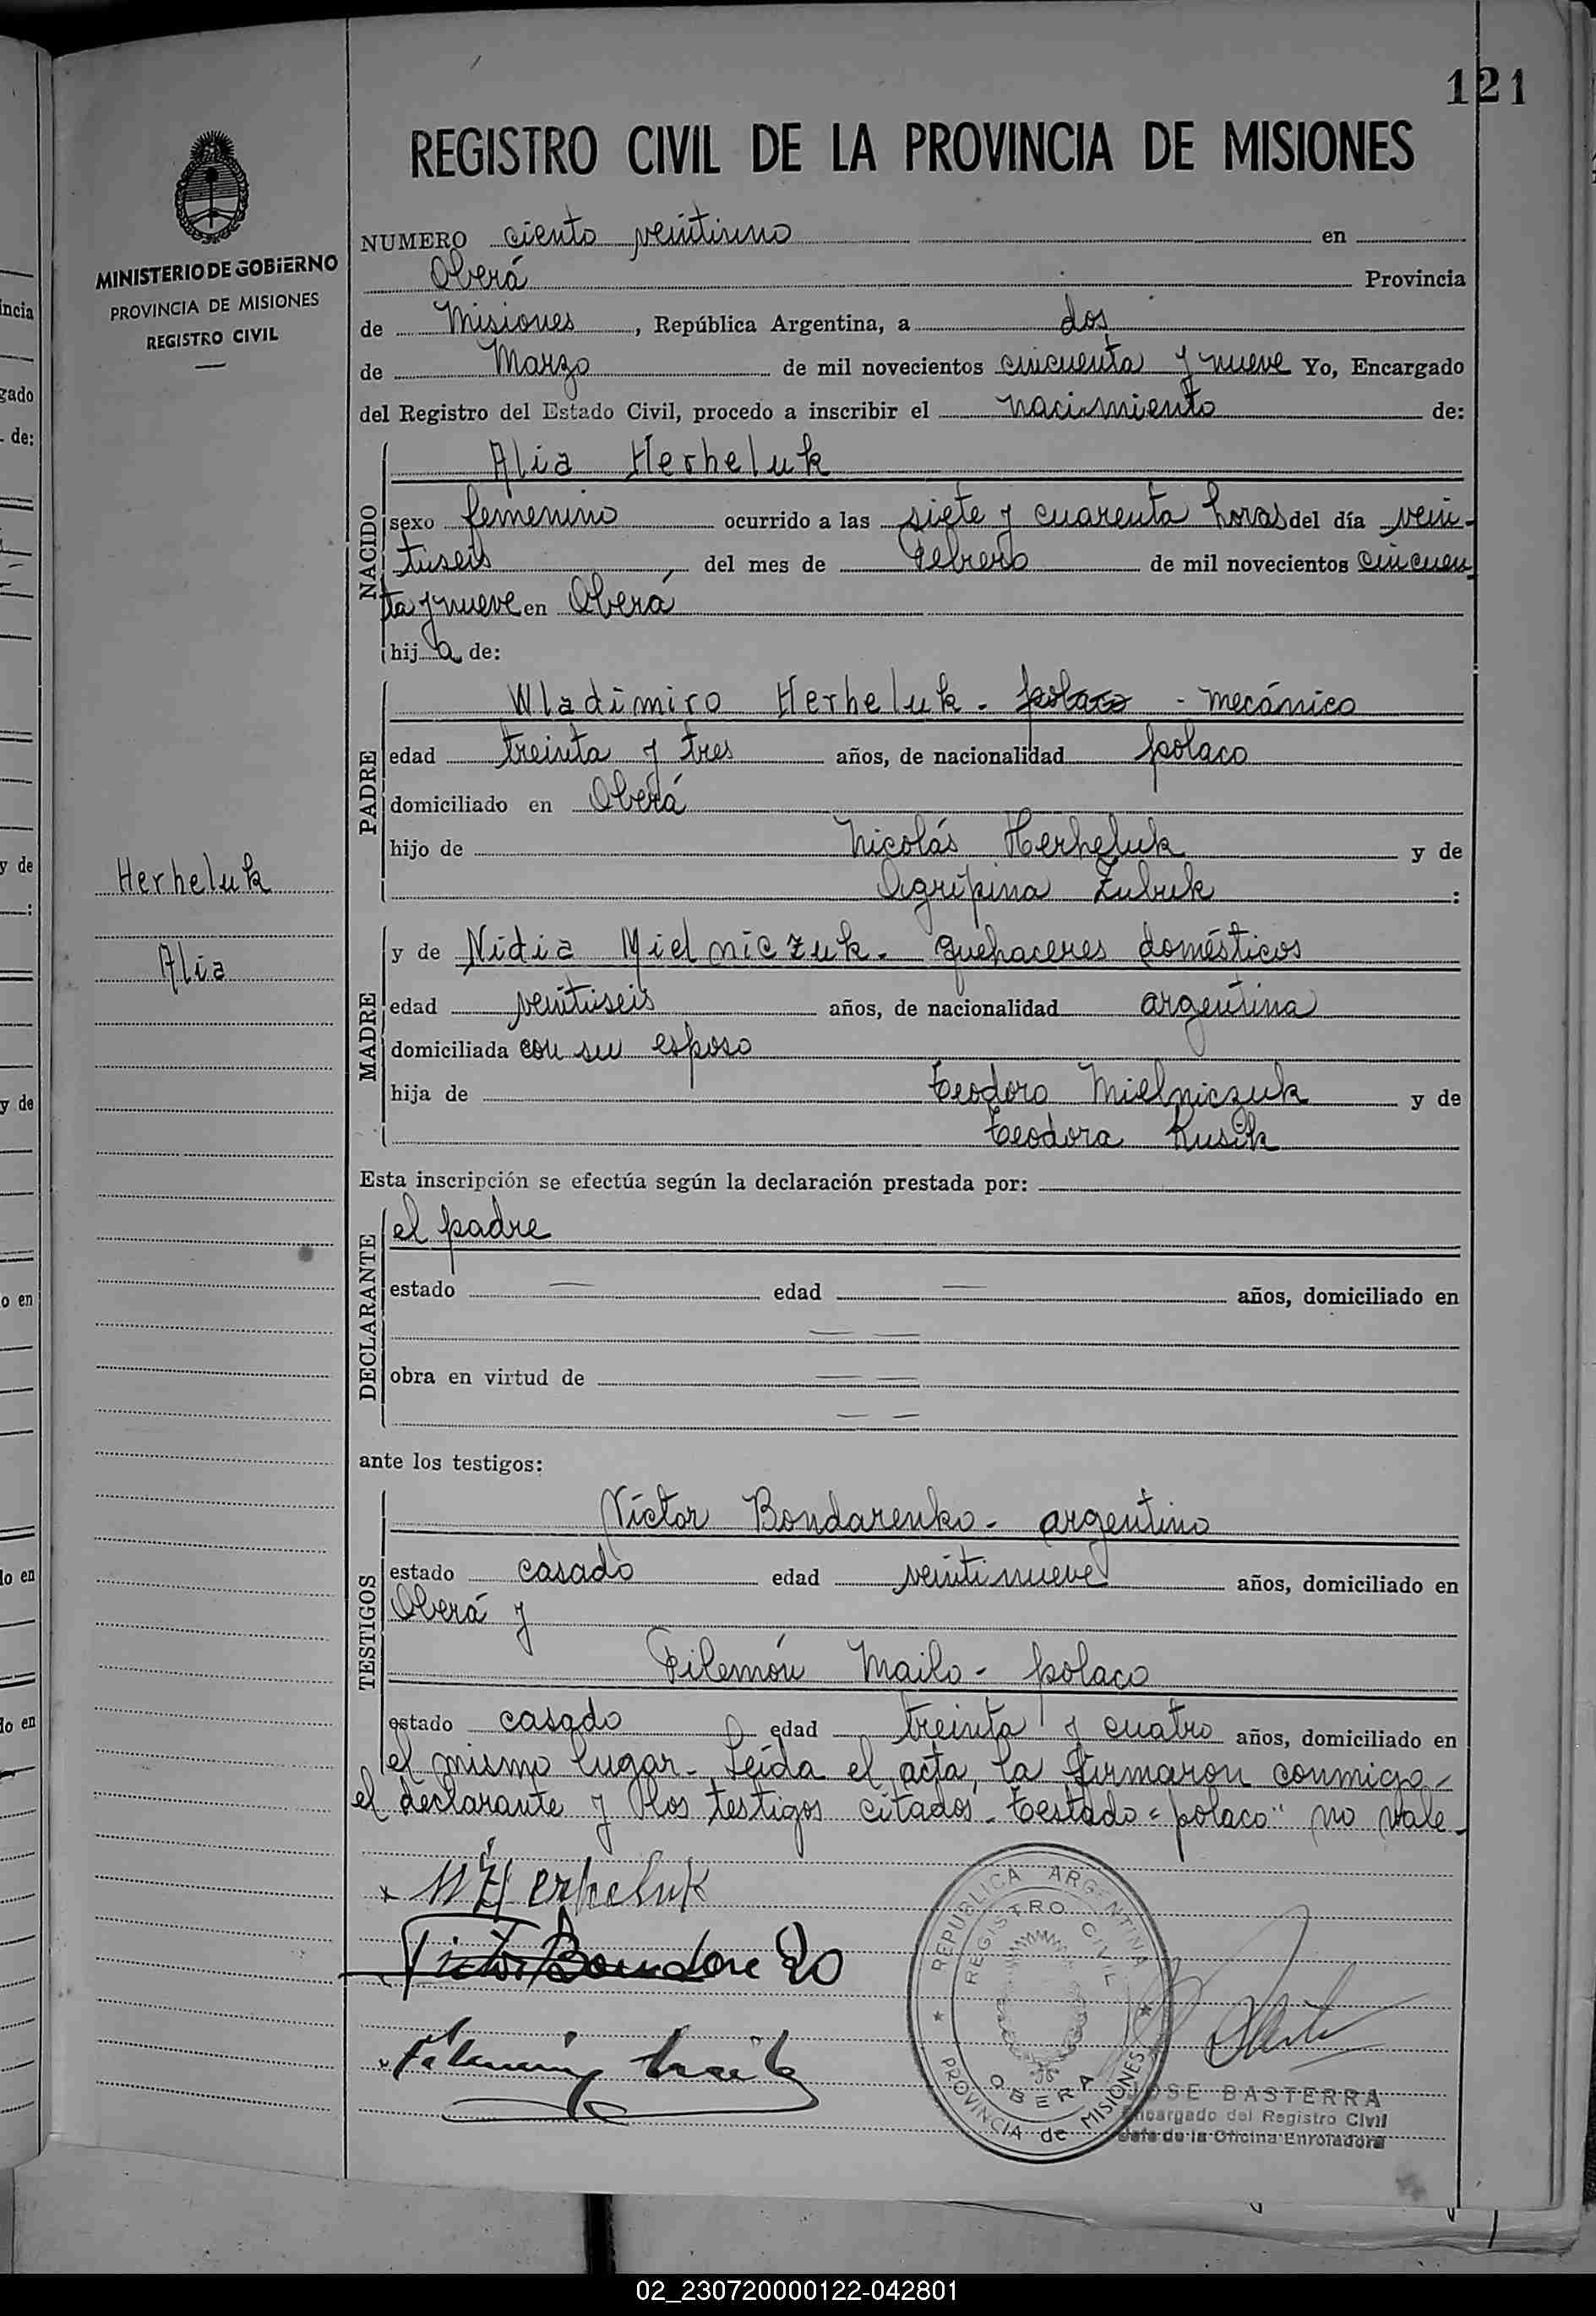 121
REGISTRO CIVIL DE LA PROVINCIA DE MISIONES
MINISTERIO DE GOBIERNO
PROVINCIA DE MISIONES
REGISTRO CIVIL
NUMERO ciento veintiuno en
Oberá Provincia
de Misiones, República Argentina, a dos
de Marzo de mil novecientos cincuenta y nueve Yo, Encargado
del Registro del Estado Civil, procedo a inscribir el nacimiento de:
NACIDO
Alia Herheluk
sexo femenino ocurrido a las siete y cuarenta horas del día vein-
tiseis del mes de Febrero de mil novecientos cincuen
ta y nueve en Oberá
hija de:
PADRE
Wladimiro Herheluk - polaco - mecánico
edad treinta y tres años, de nacionalidad polaco
domiciliado en Oberá
hijo de Nicolás Herheluk y de
Agripina Zubuk :
Herheluk
Alia
MADRE
y de Nidia Mielniczuk - quehaceres domésticos
edad veintiseis años, de nacionalidad argentina
domiciliada con su esposo
hija de Teodoro Mielniczuk y de
Teodora Kusik
Esta inscripción se efectúa según la declaración prestada por:
DECLARANTE
el padre
estado — edad — años, domiciliado en
— —
obra en virtud de — —
— —
ante los testigos:
TESTIGOS
Víctor Bondarenko - argentino
estado casado edad veintinueve años, domiciliado en
Oberá y
Filemón Mailo - polaco
estado casado edad treinta y cuatro años, domiciliado en
el mismo lugar - Leída el acta, la firmaron conmigo -
el declarante y los testigos citados - Testado = polaco" no vale -
x W Herheluk
REPUBLICA ARGENTINA
REGISTRO CIVIL
OBERA
PROVINCIA de MISIONES
JOSE BASTERRA
Encargado del Registro Civil
Jefe de la Oficina Enroladora
02_230720000122-042801